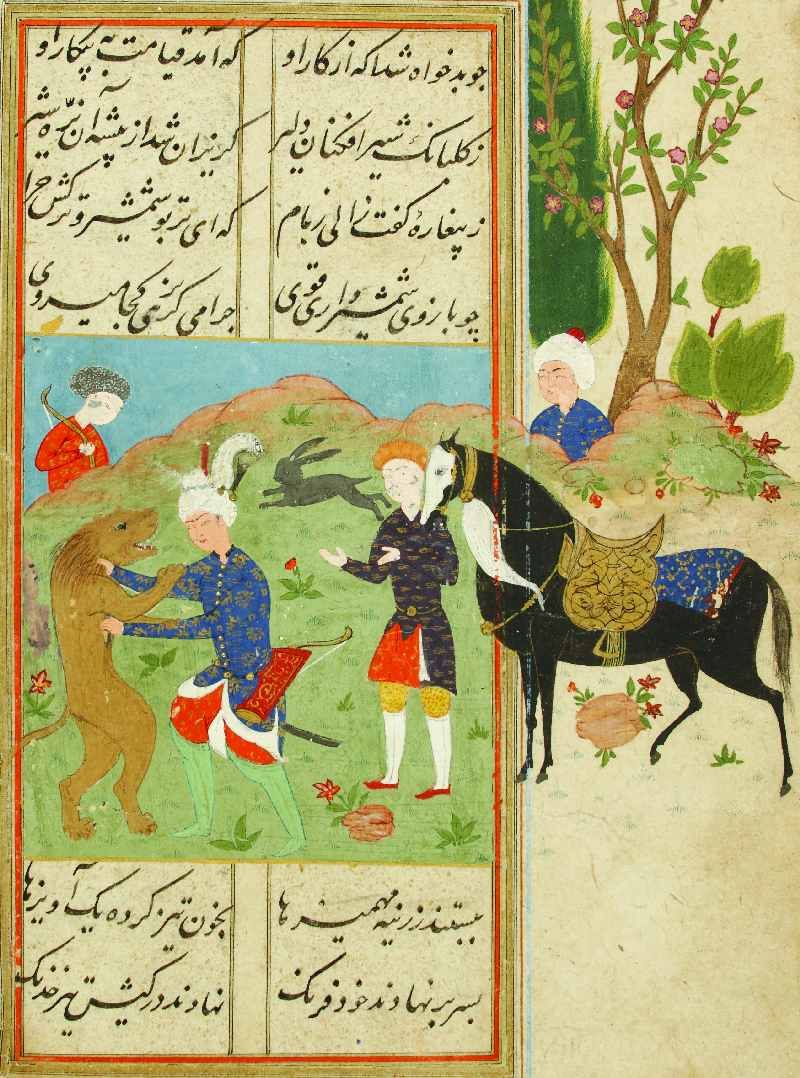 چو بدخواه شد آکه از کار او که آمد قیامت به پیکار او
ز کلبانک شیر افکنان دلیر کریزان شد از بیشه آن نره شیر
ز پیغاره کفت زالی ز بام که ای بر تو شمشیر و ترکش حرام
چو بازوی شمشیر داری قوی چرا می کریزی کجا میروی
ببستند زرینه مهمیزها بخون تیز کرده یک آویزها
بسر بر نهادند خود فرنک نهادند در کیش تیر خدنک